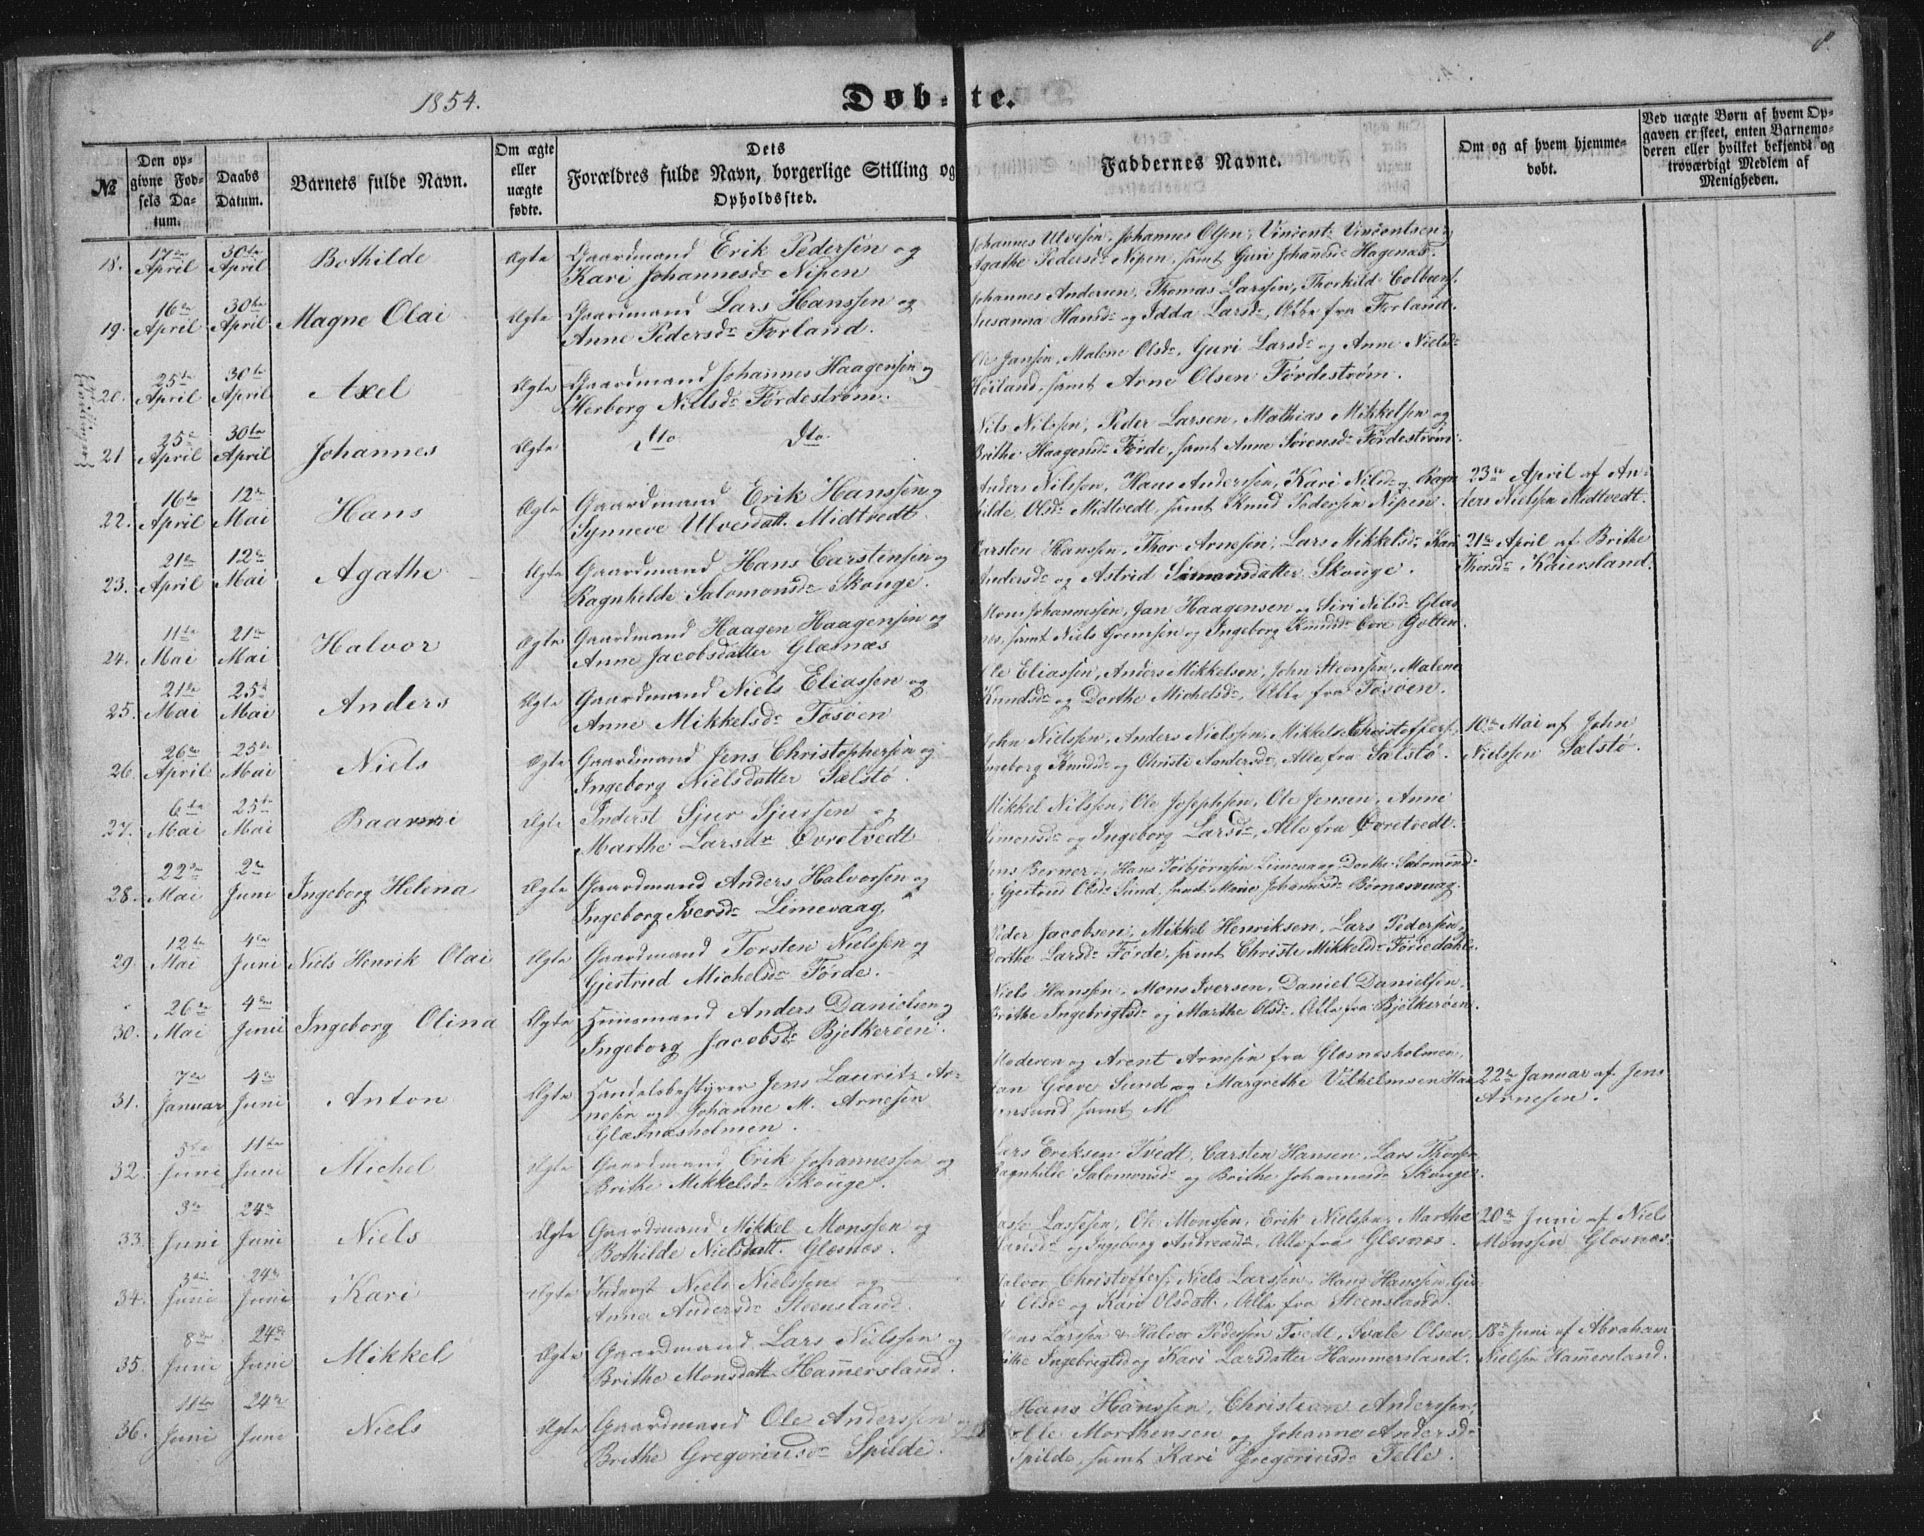 1854.
Døb-te.
8.
№
Den op-
givne Fød-
sels Da-
tum.
Daabs
Datum.
Barnets fulde Navn.
Om ægte
eller
uægte
fødte.
Dets
Forældres fulde Navn, borgerlige Stilling og
Opholdssted.
Faddernes Navne.
Om og af hvem hjemme-
døbt.
Ved uægte Børn af hvem Op-
gaven er skeet, enten Barnemo-
deren eller hvilket bekjendt og
troværdigt Medlem af
Menigheden.
18. 17de April 30te April Bothilde Ægte Gaardmand Erik Pedersen og
Kari Johannesdr Nipen
Johannes Ulvesen, Johannes Olsen, Vincent Vincentsen,
Agathe Pedersdr Nipen, samt Guri Johansdr Hagenæs.
19. 16de April 30te April Magne Olai Ægte Gaardmand Lars Hanssen og
Anne Pedersdr Forland.
Johannes Andersen, Thomas Larssen, Thorkild Colbens.
Susanna Hansdr og Idda Larsdr, Alle fra Forland.
Tvillingbørn
20. 25te April 30te April Axel Ægte Gaardmand Johannes Haagensen og
Herborg Nielsdr Førdestrøm.
Ole Jansen, Malene Olsdr, Guri Larsdr og Anne Nielsdr
Høiland, samt Arne Olsen Førdestrøm.
21 25te April 30te April Johannes Ægte Dto Dto
Nils Nilssen, Peder Larsen, Mathias Mikkelsen og
Brithe Haagensdr Førde, samt Anne Sørensdr Førdestrøm.
22. 16de April 12te Mai Hans Ægte Gaardmand Erik Hanssen og
Synneve Ulvesdatt. Midtvedt
Anders Nilssen, Hans Anderssen, Kari Nilsdr og Ragn
hilde Olsdr Midtvedt, samt Knud Pedersen Nipen.
23de April af An-
ders Nielsen Midtvedt.
23. 21de April 12te Mai Agathe Ægte Gaardmand Hans Carstensen og
Ragnhilde Salomonsdr Skouge.
Carsten Hanssen, Thor Arnesen, Lars Mikkelsdr, Kari
Andersdr og Astrid Simonsdatter Skouge.
21de April af Brithe
Thorsdr Kaursland.
24. 11te Mai 21de Mai Halvor Ægte Gaardmand Haagen Haagensen og
Anne Jacobsdatter Glæsnæs
Mons Johannessen, Jan Haagensen og Siri Nilsdr Glæs
næs, samt Niels Gremsen og Ingeborg Knudsdr Golten.
25. 21de Mai 25te Mai Anders Ægte Gaardmand Niels Eliassen og
Anne Mikkelsdr Tøsøen
Ole Eliassen, Anders Mikkelsen, John Steensen, Malene
Knudsdr og Dorthe Michelsdr, Alle fra Tøsøen.
26. 26de April 25de Mai Niels Ægte Gaardmand Jens Christophersen og
Ingeborg Nielsdatter Sælstø.
John Nielssen, Anders Nielssen, Mikkel Christoffers.
Ingeborg Knudsdr og Christi Andersdr, Alle fra Sælstø.
10de Mai af John
Nielssen Sælstø.
27. 6te Mai 25te Mai Ægte Inderst Sjur Sjurssen og
Marthe Larsdr Øvretvedt
Mikkel Nilssen, Ole Josephsen, Ole Jensen, Anne
Simonsdr og Ingeborg Larsdr, Alle fra Øvretvedt.
28. 22de Mai 2de Juni Ingeborg Helena Ægte Gaardmand Anders Halvorsen og
Ingeborg Iversdr Limevaag.
Jens Berner, Hans Torbjørnsen Limevaag, Dorthe Salomonsdr
Gjertrud Olsdr Sund, samt Marie Johannesdr Børnesvaag.
29. 12te Mai 4de Juni Niels Henrik Olai Ægte Gaardmand Torsten Nielssen og
Gjertrud Michelsdr Førde.
Peder Jacobsen, Mikkel Henriksen, Lars Pedersen,
Dorthe Larsdr Førde, samt Christi Mikkelsdr Førdedahl.
30. 26de Mai 4de Juni Ingeborg Olina Ægte Huusmand Anders Danielsen og
Ingeborg Jacobsdr Bjelkerøen.
Niels Hanssen, Mons Iversen, Daniel Danielsen,
Brithe Ingebrigtsdr og Marthe Olsdr, Alle fra Bjelkerøen.
31. 7de Januar 4de Juni Anton Ægte Handelsbestyrer Jens Lauritz Ar-
nesen og Johanne M. Arnesen
Glæsnæsholmen.
Moderen og Arent Arnesen fra Glæsnæsholmen,
Jan Greve Sund og Margrethe Vilhelmsen Har
samt M
22de Januar af Jens
Arnesen.
32. 5te Juni 11te Juni Michel Ægte Gaardmand Erik Johannessen og
Brithe Mikkelsdr Skouge.
Lars Eriksen Tvedt, Carsten Hansen, Lars Thorsen
Ragnhilde Salomonsdr og Brithe Johannesdr Skouge.
33. 3de Juni 24de Juni Niels Ægte Gaardmand Mikkel Monssen og
Bothilde Nielsdatt. Glesnes.
Lasse Lassesen, Ole Monssen, Erik Nielsen, Marthe
Hansdr og Ingeborg Andreasdr, Alle fra Glesnæs.
20de Juni af Niels
Monssen Glesnæs.
34. 3die Juni 24de Juni Kari Ægte Inderst Niels Nielssen og
Anna Andersdr Steensland.
Halvor Christoffers., Niels Larssen, Hans Hanssen, Gu
ri Olsdr og Kari Olsdatt., Alle fra Steensland.
35. 8de Juni 24de Juni Mikkel Ægte Gaardmand Lars Nielssen og
Brithe Monsdatt. Hammersland.
Mons Larssen & Halvor Pedersen Tvedt, Svale Olsen,
Brithe Ingebrigtsd og Kari Larsdatter Hammersland.
18de Juni af Abraham
Nielsen Hammersland.
36. 11te Juni 24de Juni Niels Ægte Gaardmand Ole Anderssen og
Brithe Gregoriusdr Spilde.
Hans Hanssen, Christian Anderssen,
Ole Morthensen og Johanne Andersdr
Spilde, samt Kari Gregoriusdr Telle.